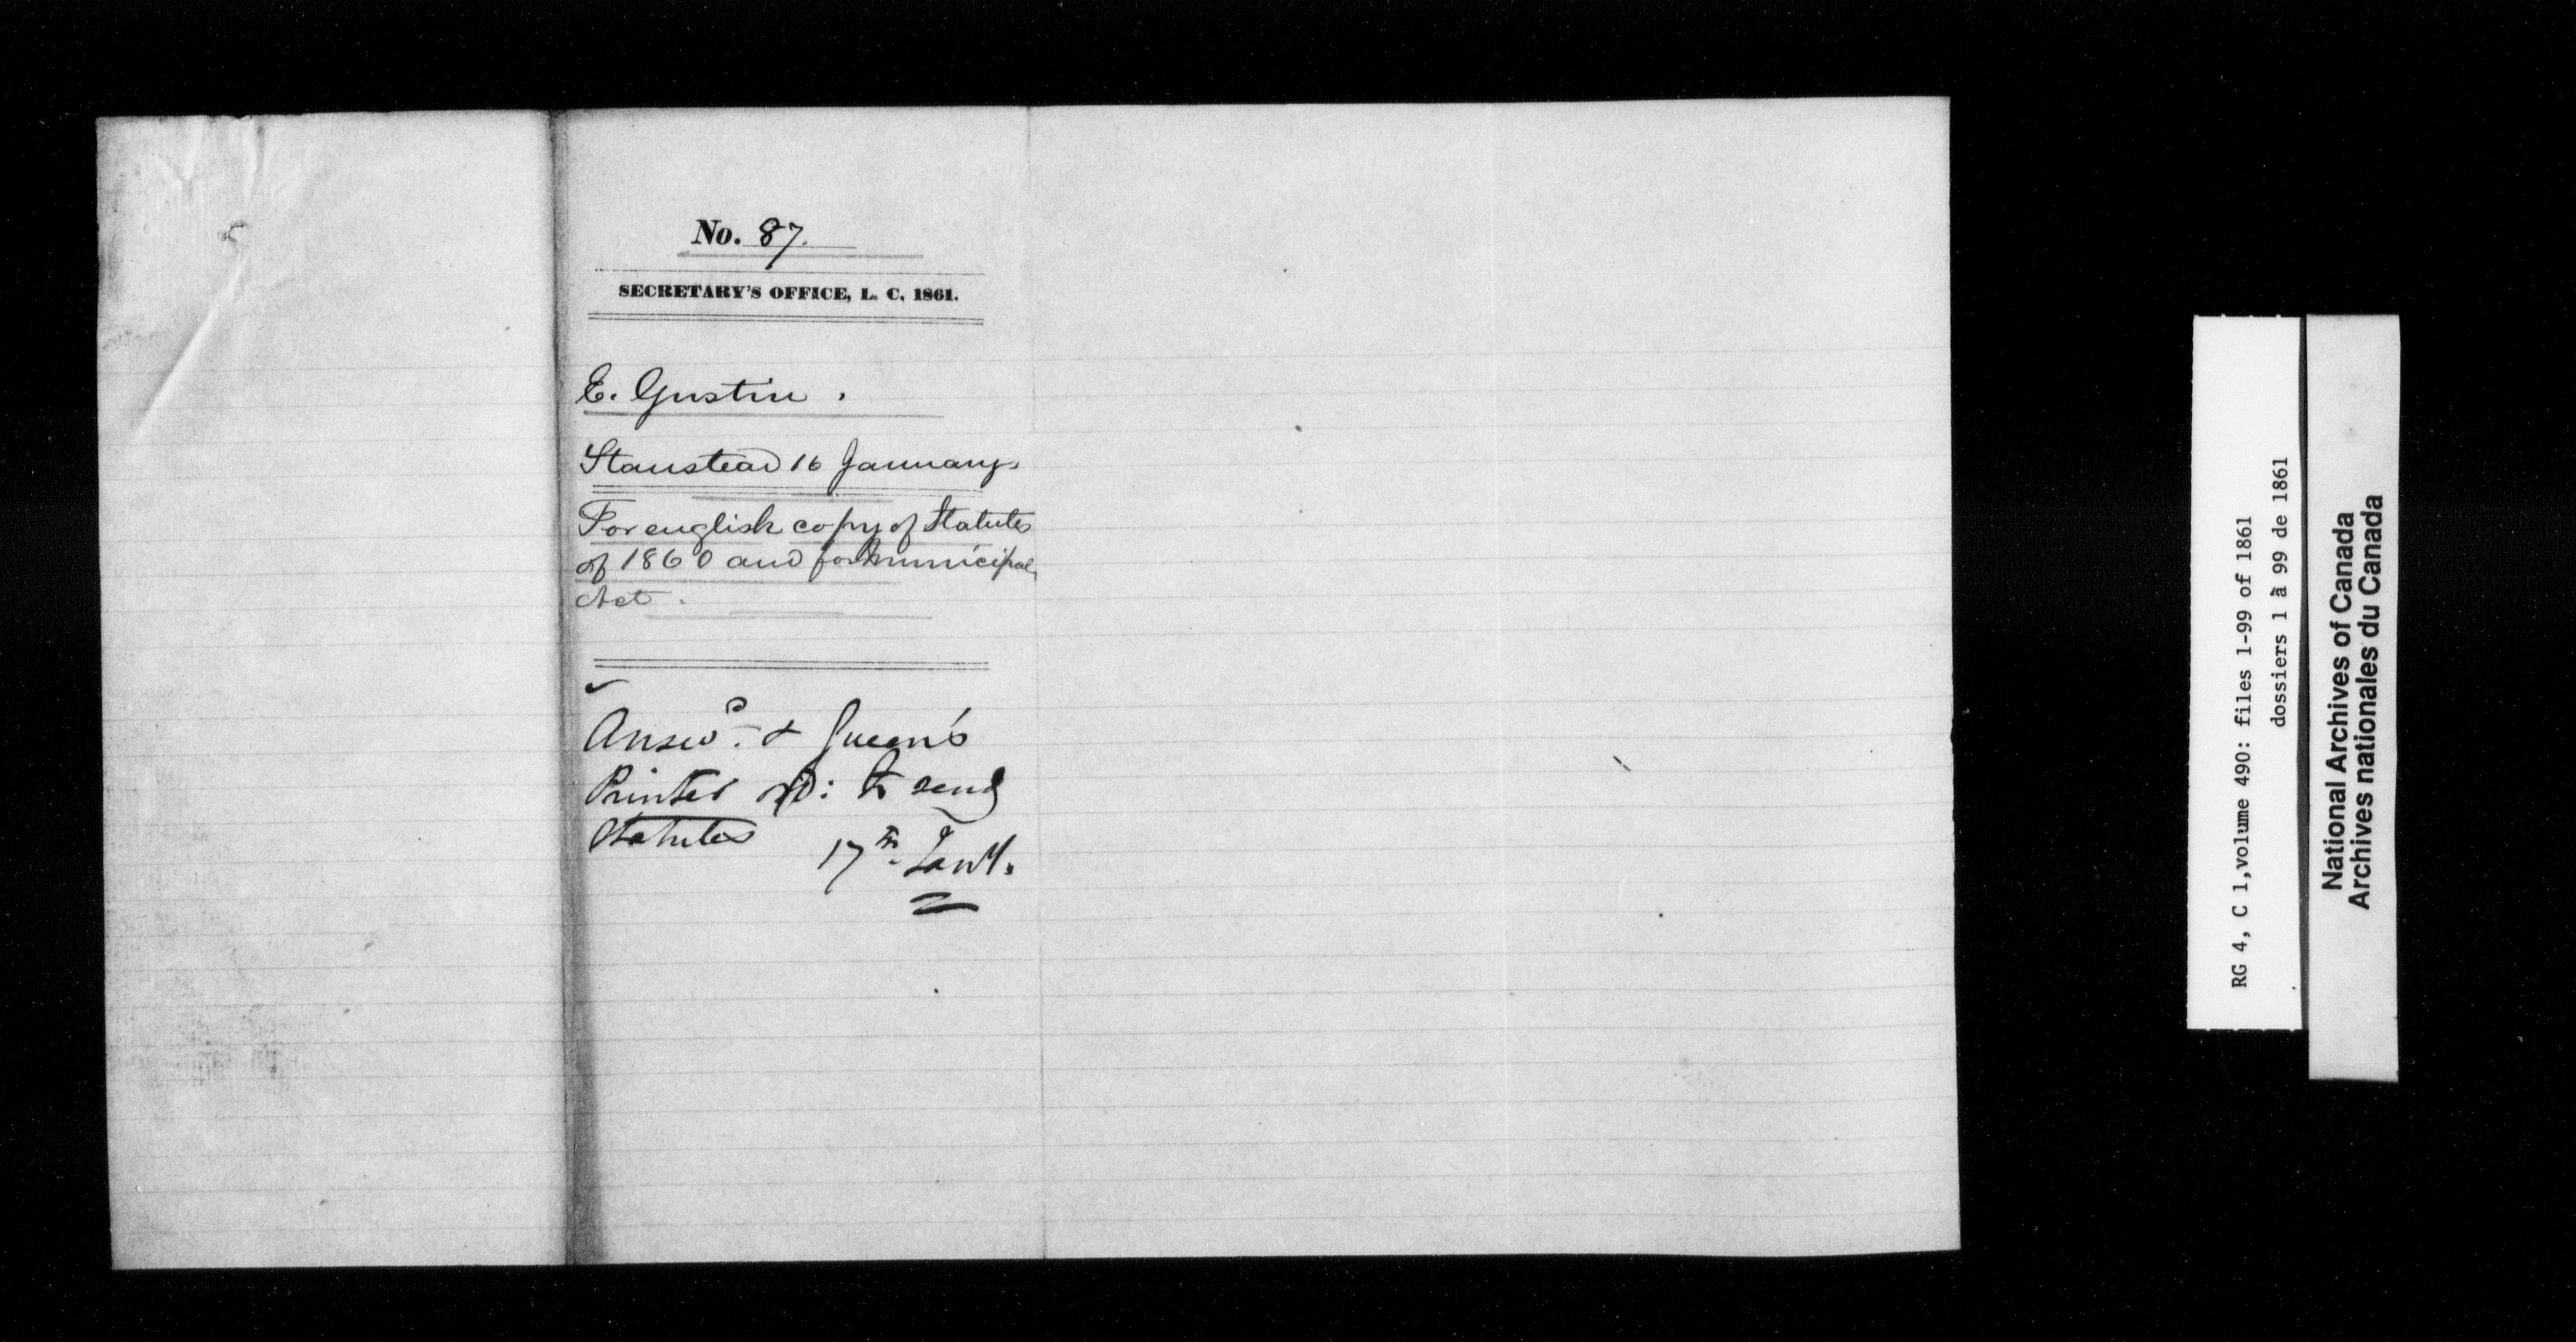 No. 87.
SECRETARY'S OFFICE, L. C. 1861.
E. Gustin.
Stanstead 16 January.
For english copy of Statutes
of 1860 and for municipal
Act.
Answd. & Queen's
Printer to send
Statutes
17th Jany.
RG 4, C 1,volume 490: files 1-99 of 1861
dossiers 1 à 99 de 1861
National Archives of Canada
Archives nationales du Canada